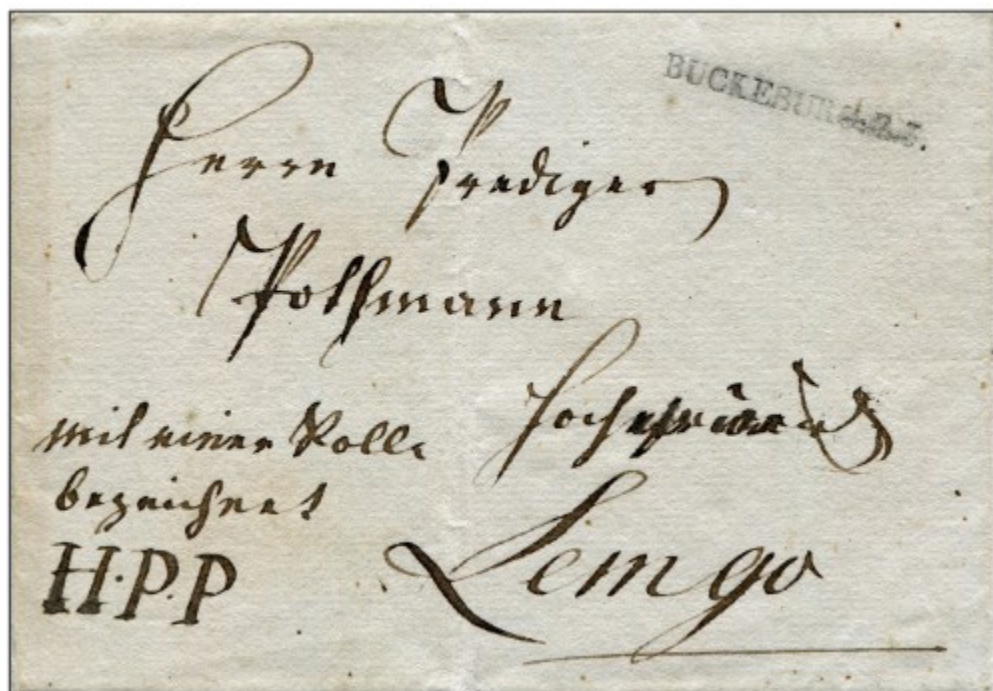 BUCKEBURG R.3.
Herrn Prediger
Pothmann
Hochehrwürd
mit einer Rolle
bezeichnet
H.P.P
Lemgo